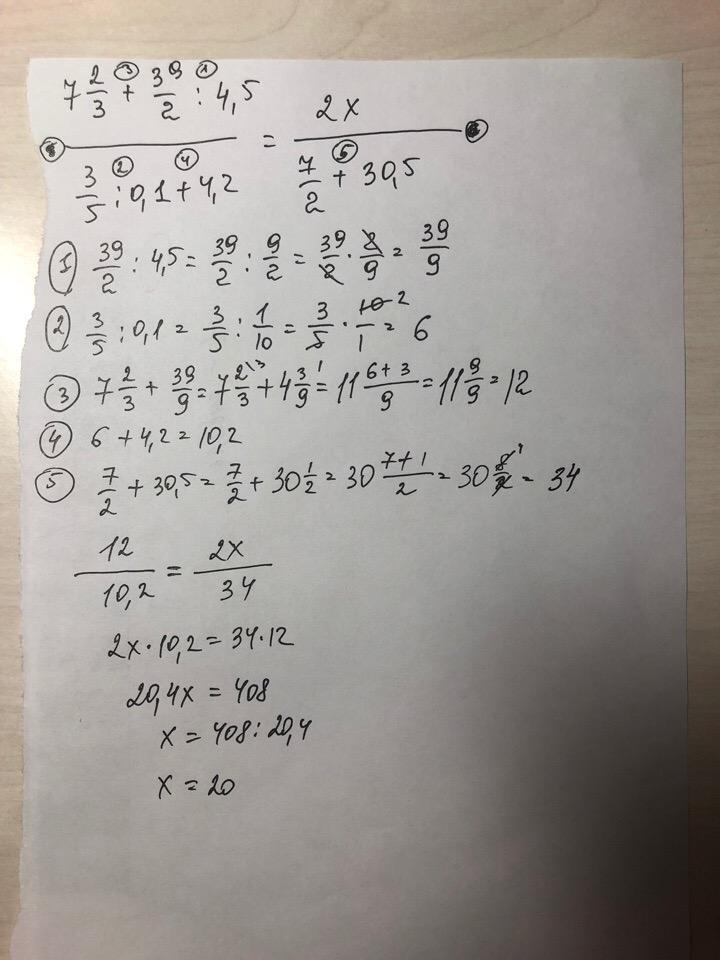 ③ ①
7 2/3 + 39/2 : 4,5 = 2x
② ④ ⑤
3/5 : 0,1 + 4,2 7/2 + 30,5
① 39/2 : 4,5 = 39/2 : 9/2 = 39/2 · 2/9 = 39/9
② 3/5 : 0,1 = 3/5 : 1/10 = 3/5 · 10/1 2 = 6
③ 7 2/3 + 39/9 = 7 2\3/3 + 4 3\1/9 = 11 6+3/9 = 11 9/9 = 12
④ 6 + 4,2 = 10,2
⑤ 7/2 + 30,5 = 7/2 + 30 1/2 = 30 7+1/2 = 30 8/2 = 34
12/10,2 = 2x/34
2x · 10,2 = 34 · 12
20,4x = 408
x = 408 : 20,4
x = 20